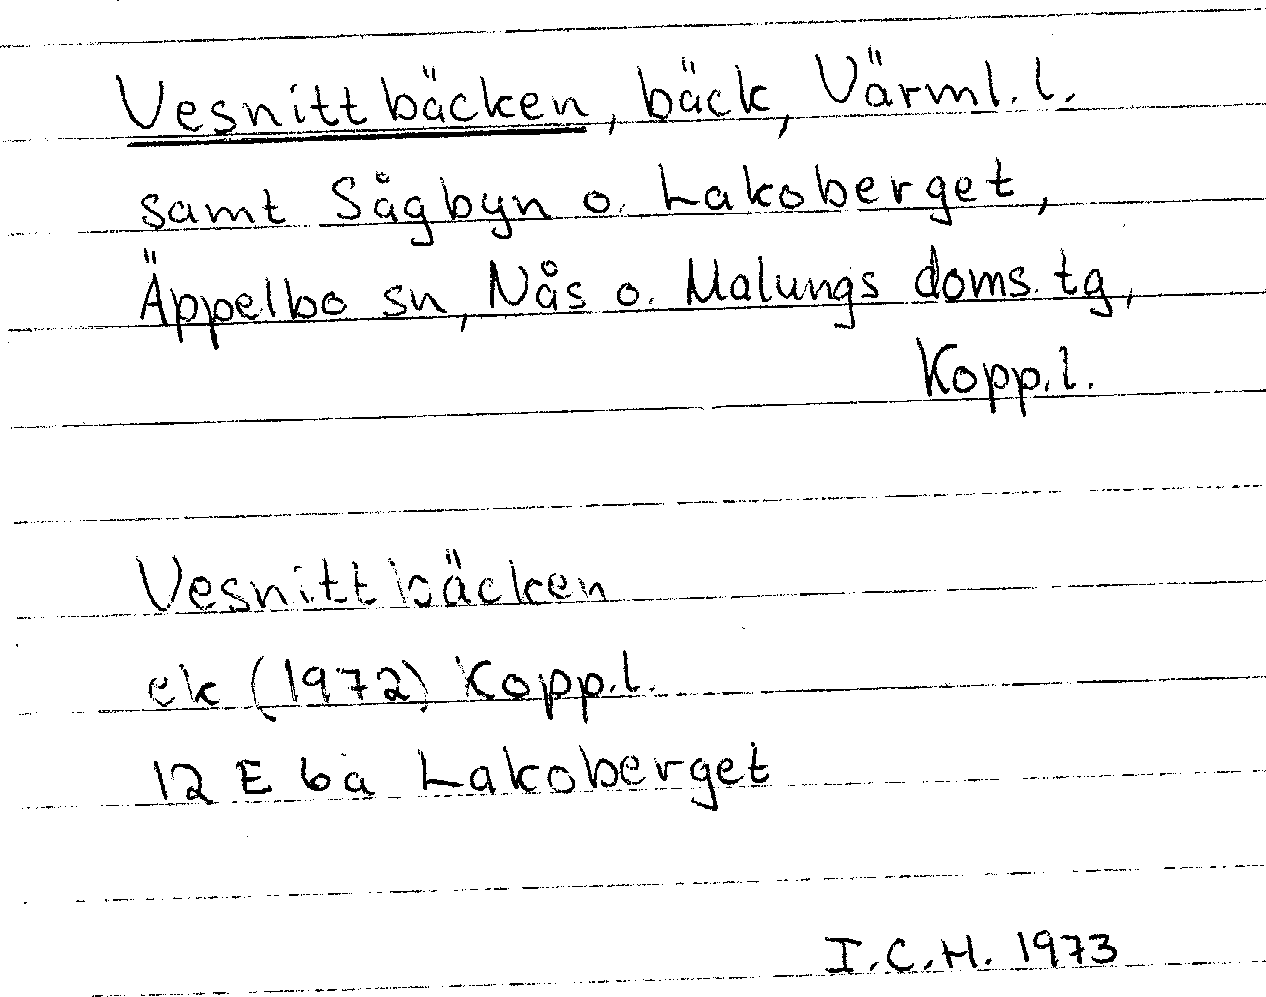 Vesnittbäcken, bäck, Värml. l.
samt Sågbyn o. Lakoberget,
Äppelbo sn, Nås o. Malungs doms. tg,
Kopp. l.
Vesnittbäcken
ek (1972) Kopp. l.
12 E 6a Lakoberget
I.C.H. 1973